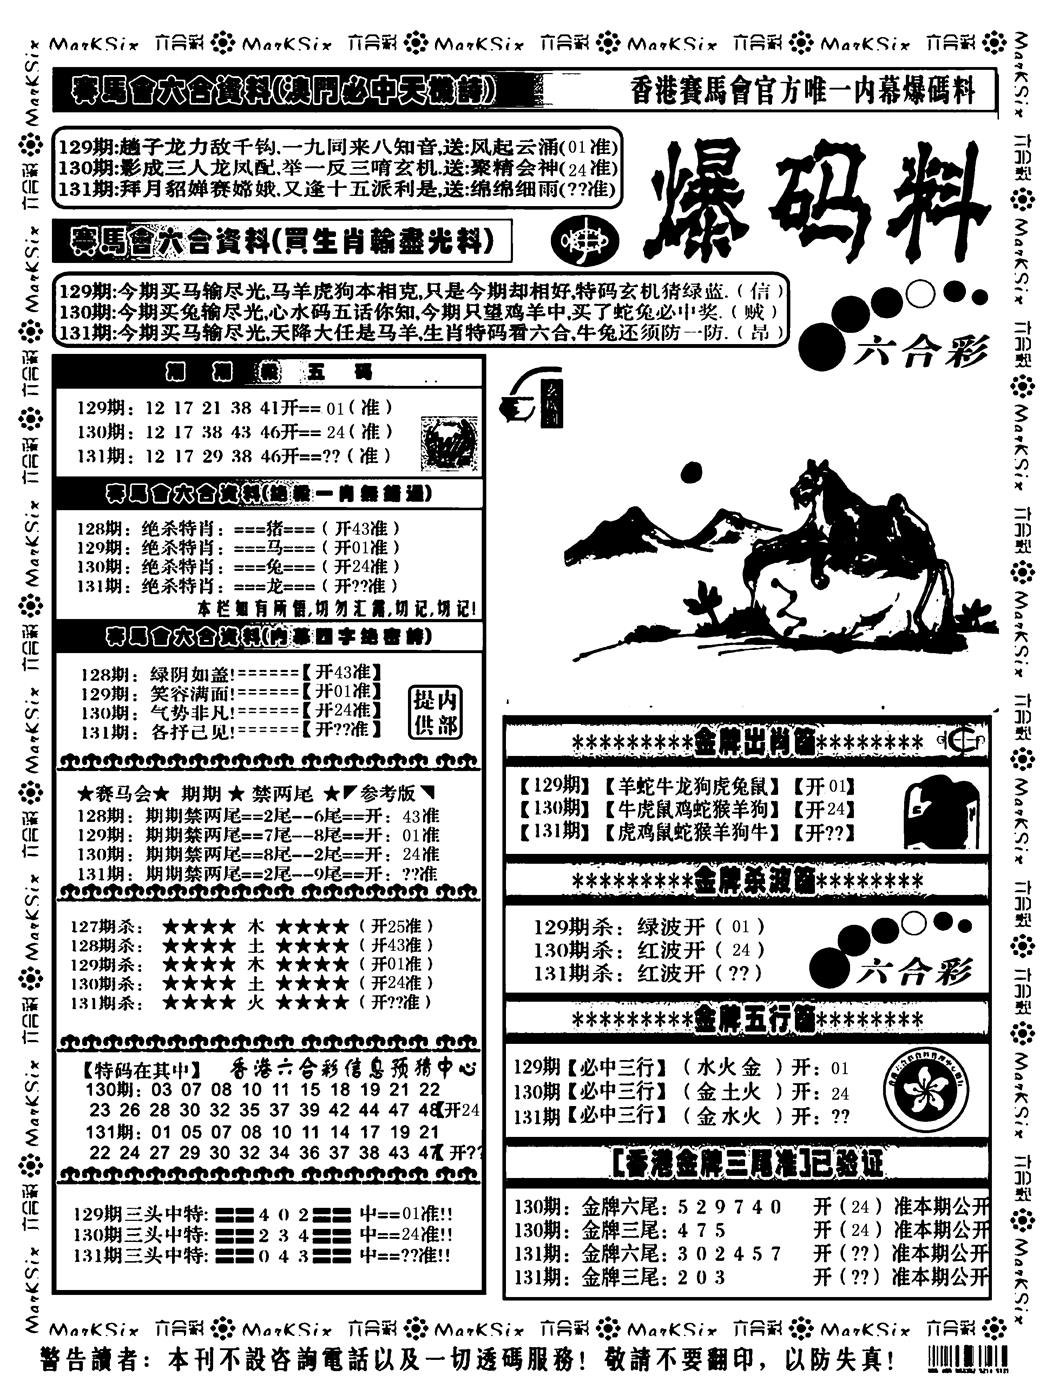 MarKSix 六合彩 MarKSix 六合彩 MarKSix 六合彩 MarKSix 六合彩 MarKSix 六合彩
賽馬會六合資料(澳門必中天機詩)
香港賽馬會官方唯一内幕爆碼料
129期:趟子龙力敌千钩.一九同来八知音,送:风起云涌(01准)
130期:影成三人龙凤配.举一反三唷玄机,送:聚精会神(24准)
131期:拜月貂婵赛嫦娥.又逢十五派利是,送:绵绵细雨(??准)
爆码料
賽馬會六合資料(買生肖輸盡光料)
129期:今期买马输尽光,马羊虎狗本相克,只是今期却相好,特码玄机猜绿蓝.(信)
130期:今期买兔输尽光,心水码五话你知,今期只望鸡羊中,买了蛇兔必中奖.(贼)
131期:今期买马输尽光,天降大任是马羊,生肖特码看六合,牛兔还须防一防.(昂)
六合彩
期期殺五碼
129期: 12 17 21 38 41开== 01(准)
130期: 12 17 38 43 46开== 24(准)
131期: 12 17 29 38 46开==??(准)
賽馬會六合資料(絶殺一肖無錯過)
128期: 绝杀特肖: ===猪===(开43准)
129期: 绝杀特肖: ===马===(开01准)
130期: 绝杀特肖: ===兔===(开24准)
131期: 绝杀特肖: ===龙===(开??准)
本栏如有所悟,切勿汇露,切记,切记!
賽馬會六合資料(内幕四字绝密詩)
128期: 绿阴如盖!======【开43准】
129期: 笑容满面!======【开01准】
130期: 气势非凡!======【开24准】
131期: 各抒己见!======【开??准】
提内
供部
★赛马会★ 期期 ★ 禁两尾 ★◤参考版◥
128期: 期期禁两尾==2尾--6尾==开: 43准
129期: 期期禁两尾==7尾--8尾==开: 01准
130期: 期期禁两尾==8尾--2尾==开: 24准
131期: 期期禁两尾==2尾--9尾==开: ??准
127期杀: ★★★★ 木 ★★★★(开25准)
128期杀: ★★★★ 土 ★★★★(开43准)
129期杀: ★★★★ 木 ★★★★(开01准)
130期杀: ★★★★ 土 ★★★★(开24准)
131期杀: ★★★★ 火 ★★★★(开??准)
【特码在其中】 香港六合彩信息预猜中心
130期: 03 07 08 10 11 15 18 19 21 22
23 26 28 30 32 35 37 39 42 44 47 48【开24
131期: 01 05 07 08 10 11 14 17 19 21
22 24 27 29 30 32 34 36 37 38 43 47【开??
129期三头中特: 402 中==01准!!
130期三头中特: 234 中==24准!!
131期三头中特: 043 中==??准!!
*********金牌出肖篇********
【129期】【羊蛇牛龙狗虎兔鼠】【开01】
【130期】【牛虎鼠鸡蛇猴羊狗】【开24】
【131期】【虎鸡鼠蛇猴羊狗牛】【开??】
*********金牌杀波篇********
129期杀: 绿波开(01)
130期杀: 红波开(24)
131期杀: 红波开(??)
六合彩
*********金牌五行篇********
129期【必中三行】(水火金)开: 01
130期【必中三行】(金土火)开: 24
131期【必中三行】(金水火)开: ??
[香港金牌三尾准]已验证
130期: 金牌六尾: 529740 开(24)准本期公开
130期: 金牌三尾: 475 开(24)准本期公开
131期: 金牌六尾: 302457 开(??)准本期公开
131期: 金牌三尾: 203 开(??)准本期公开
MarKSix 六合彩 MarKSix 六合彩 MarKSix 六合彩 MarKSix 六合彩 MarKSix 六合彩
警告讀者: 本刊不設咨詢電話以及一切透碼服務! 敬請不要翻印, 以防失真!